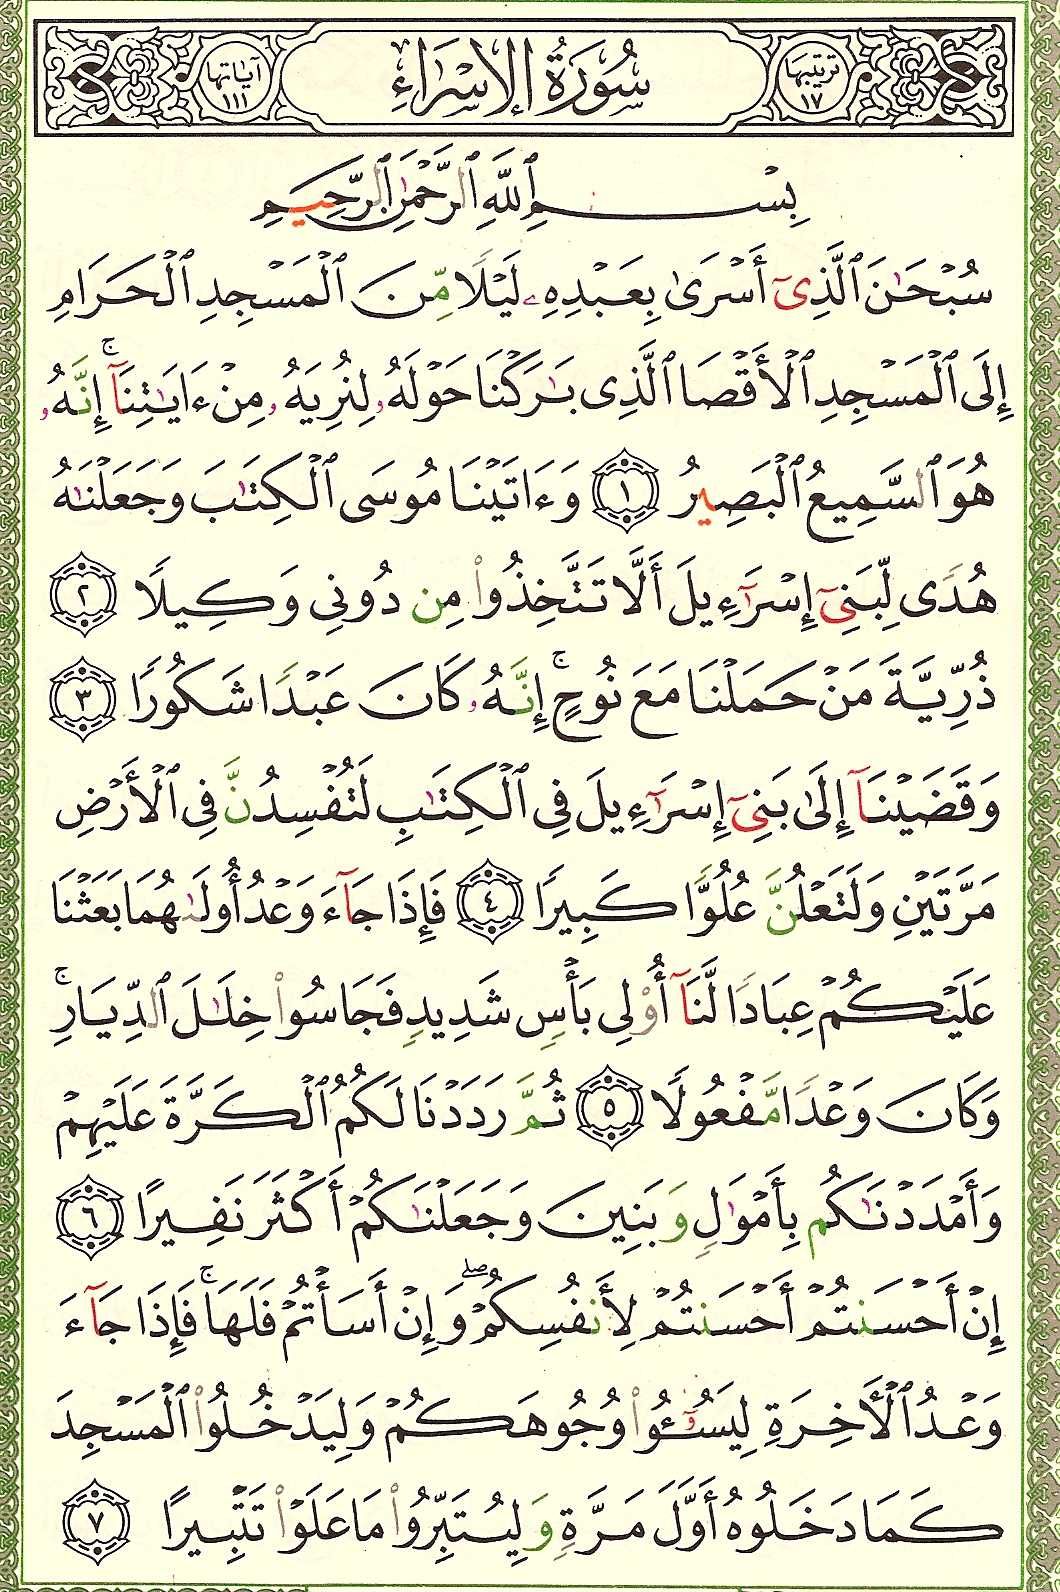 ترتيبها ١٧
سُورَةُ الإِسْرَاءِ
آياتها ١١١
بِسْمِ ٱللَّهِ ٱلرَّحْمَٰنِ ٱلرَّحِيمِ
سُبْحَٰنَ ٱلَّذِىٓ أَسْرَىٰ بِعَبْدِهِۦ لَيْلًا مِّنَ ٱلْمَسْجِدِ ٱلْحَرَامِ
إِلَى ٱلْمَسْجِدِ ٱلْأَقْصَا ٱلَّذِى بَٰرَكْنَا حَوْلَهُۥ لِنُرِيَهُۥ مِنْ ءَايَٰتِنَآ ۚ إِنَّهُۥ
هُوَ ٱلسَّمِيعُ ٱلْبَصِيرُ ١ وَءَاتَيْنَا مُوسَى ٱلْكِتَٰبَ وَجَعَلْنَٰهُ
هُدًى لِّبَنِىٓ إِسْرَٰٓءِيلَ أَلَّا تَتَّخِذُوا۟ مِن دُونِى وَكِيلًا ٢
ذُرِّيَّةَ مَنْ حَمَلْنَا مَعَ نُوحٍ ۚ إِنَّهُۥ كَانَ عَبْدًا شَكُورًا ٣
وَقَضَيْنَآ إِلَىٰ بَنِىٓ إِسْرَٰٓءِيلَ فِى ٱلْكِتَٰبِ لَتُفْسِدُنَّ فِى ٱلْأَرْضِ
مَرَّتَيْنِ وَلَتَعْلُنَّ عُلُوًّا كَبِيرًا ٤ فَإِذَا جَآءَ وَعْدُ أُولَىٰهُمَا بَعَثْنَا
عَلَيْكُمْ عِبَادًا لَّنَآ أُو۟لِى بَأْسٍ شَدِيدٍ فَجَاسُوا۟ خِلَٰلَ ٱلدِّيَارِ ۚ
وَكَانَ وَعْدًا مَّفْعُولًا ٥ ثُمَّ رَدَدْنَا لَكُمُ ٱلْكَرَّةَ عَلَيْهِمْ
وَأَمْدَدْنَٰكُم بِأَمْوَٰلٍ وَبَنِينَ وَجَعَلْنَٰكُمْ أَكْثَرَ نَفِيرًا ٦
إِنْ أَحْسَنتُمْ أَحْسَنتُمْ لِأَنفُسِكُمْ ۖ وَإِنْ أَسَأْتُمْ فَلَهَا ۚ فَإِذَا جَآءَ
وَعْدُ ٱلْأَخِرَةِ لِيَسُۥٓـُٔوا۟ وُجُوهَكُمْ وَلِيَدْخُلُوا۟ ٱلْمَسْجِدَ
كَمَا دَخَلُوهُ أَوَّلَ مَرَّةٍ وَلِيُتَبِّرُوا۟ مَا عَلَوْا۟ تَتْبِيرًا ٧